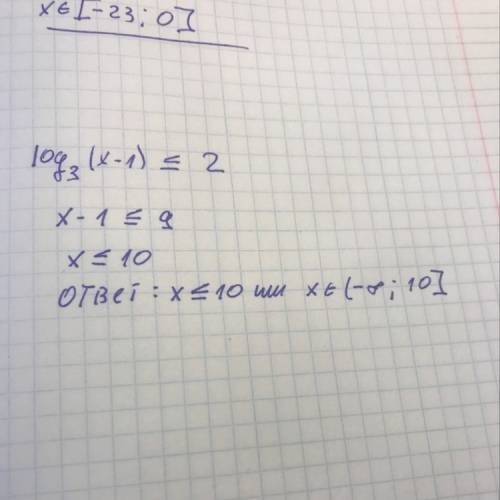 x∈[-23; 0]
log₃(x-1) ≤ 2
x-1 ≤ 9
x ≤ 10
ответ: x ≤ 10 или x∈(-∞; 10]